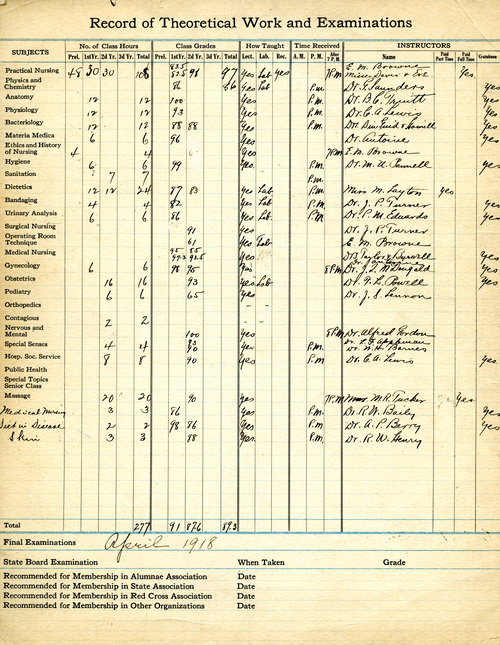 Record of Theoretical Work and Examinations
SUBJECTS No. of Class Hours Class Grades How Taught Time Received INSTRUCTORS
Prel. 1st Yr. 2d Yr. 3d Yr. Total Prel. 1st Yr. 2d Yr. 3d Yr. Total Lect. Lab. Rec. A. M. P. M. After 7 P.M. Name Paid Part Time Paid Full Time Gratuitous
Practical Nursing 48 30 30 108 83.5 82.5 98 97 Yes Lab Yes 7P.M E. M. Browne Yes
Physics and Chemistry 86 86 Yes Lab P.m. Dr. E. Saunders Yes
Anatomy 12 12 100 Yes P.M. Dr. B. C. Yes
Physiology 12 12 93 Yes P.M. Dr. C. A. Lewis Yes
Bacteriology 12 12 88 88 Yes P.M. Yes
Materia Medica 6 6 96 Yes Dr. Antoine Yes
Ethics and History of Nursing 4 4 Yes 7P.M E. M. Browne
Hygiene 6 6 99 Yes P.M. Dr. M. U. Yes
Sanitation 7 7 P.m.
Dietetics 12 12 24 87 83 Yes Lab. P.M. Miss M. Layton Yes
Bandaging 4 4 82 Yes Lab. P.M. Dr. J. P. Turner Yes
Urinary Analysis 6 6 86 Yes Lab. P.M. Dr. P. M. Edwards Yes
Surgical Nursing 91 Yes Dr. J. P. Turner
Operating Room Technique 61 Yes Lab E. M. Browne
Medical Nursing 95 85 92.5 Yes Yes
Gynecology 6 6 98 95 Yes 8P.M Dr. J. L. McDougald Yes
Obstetrics 16 16 93 Yes Lab Powell Yes
Pediatry 6 6 65 Yes Dr. J. S. Lennon
Orthopedics
Contagious 2 2
Nervous and Mental 100 Yes 8P.M Dr. Alfred Gordon
Special Senses 4 4 83 90 Yes P.M. Dr. W. H. Barnes Yes
Hosp. Soc. Service 8 8 90 Yes P.M Dr. C. A. Lewis Yes
Public Health
Special Topics Senior Class
Massage 20 20 90 Yes 7P.M M. R. Tucker Yes
Medical Nursing 3 3 86 Yes P.M. Dr. R. W. Baily Yes
Diet in Disease 2 2 98 86 Yes P.M. Dr. A. P. Berry Yes
Skin 3 3 88 Yes P.M. Dr. R. W. Henry
Total 277 91 87.6 87.3
Final Examinations April 1918
State Board Examination When Taken Grade
Recommended for Membership in Alumnae Association Date
Recommended for Membership in State Association Date
Recommended for Membership in Red Cross Association Date
Recommended for Membership in Other Organizations Date